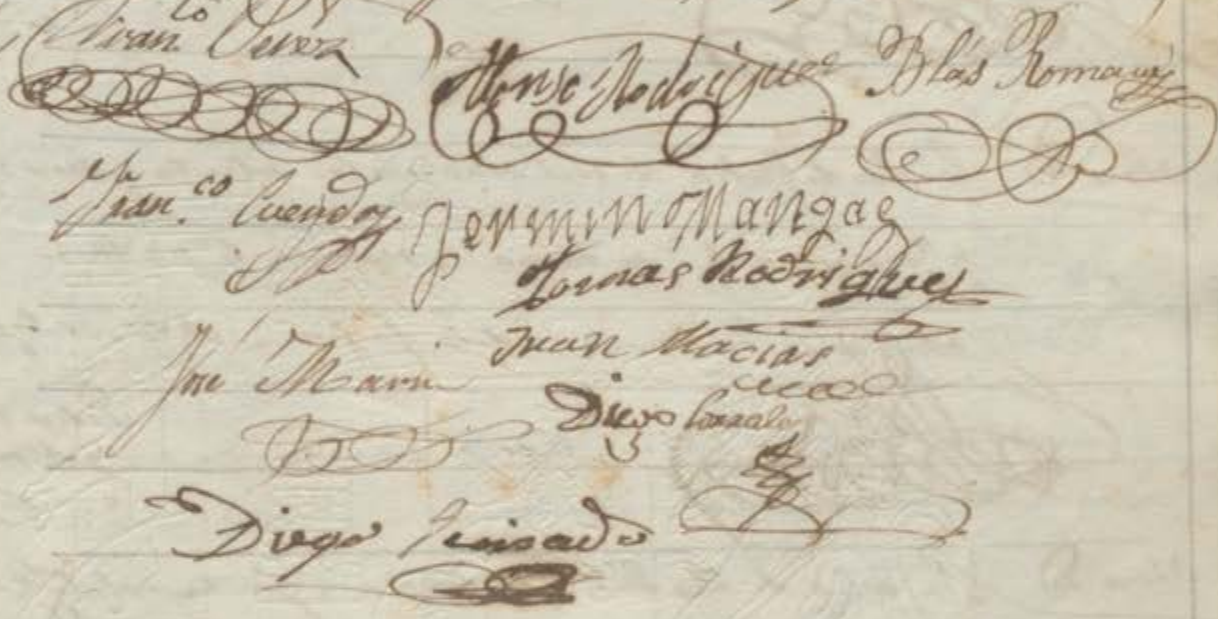 Fran.co Perez Alonso Rodriguez Blás Roman
Fran.co Cuendoz Fermin Mangas
Tomas Rodriguez
José Marin Juan Macias
Diego Gonzalo
Diego